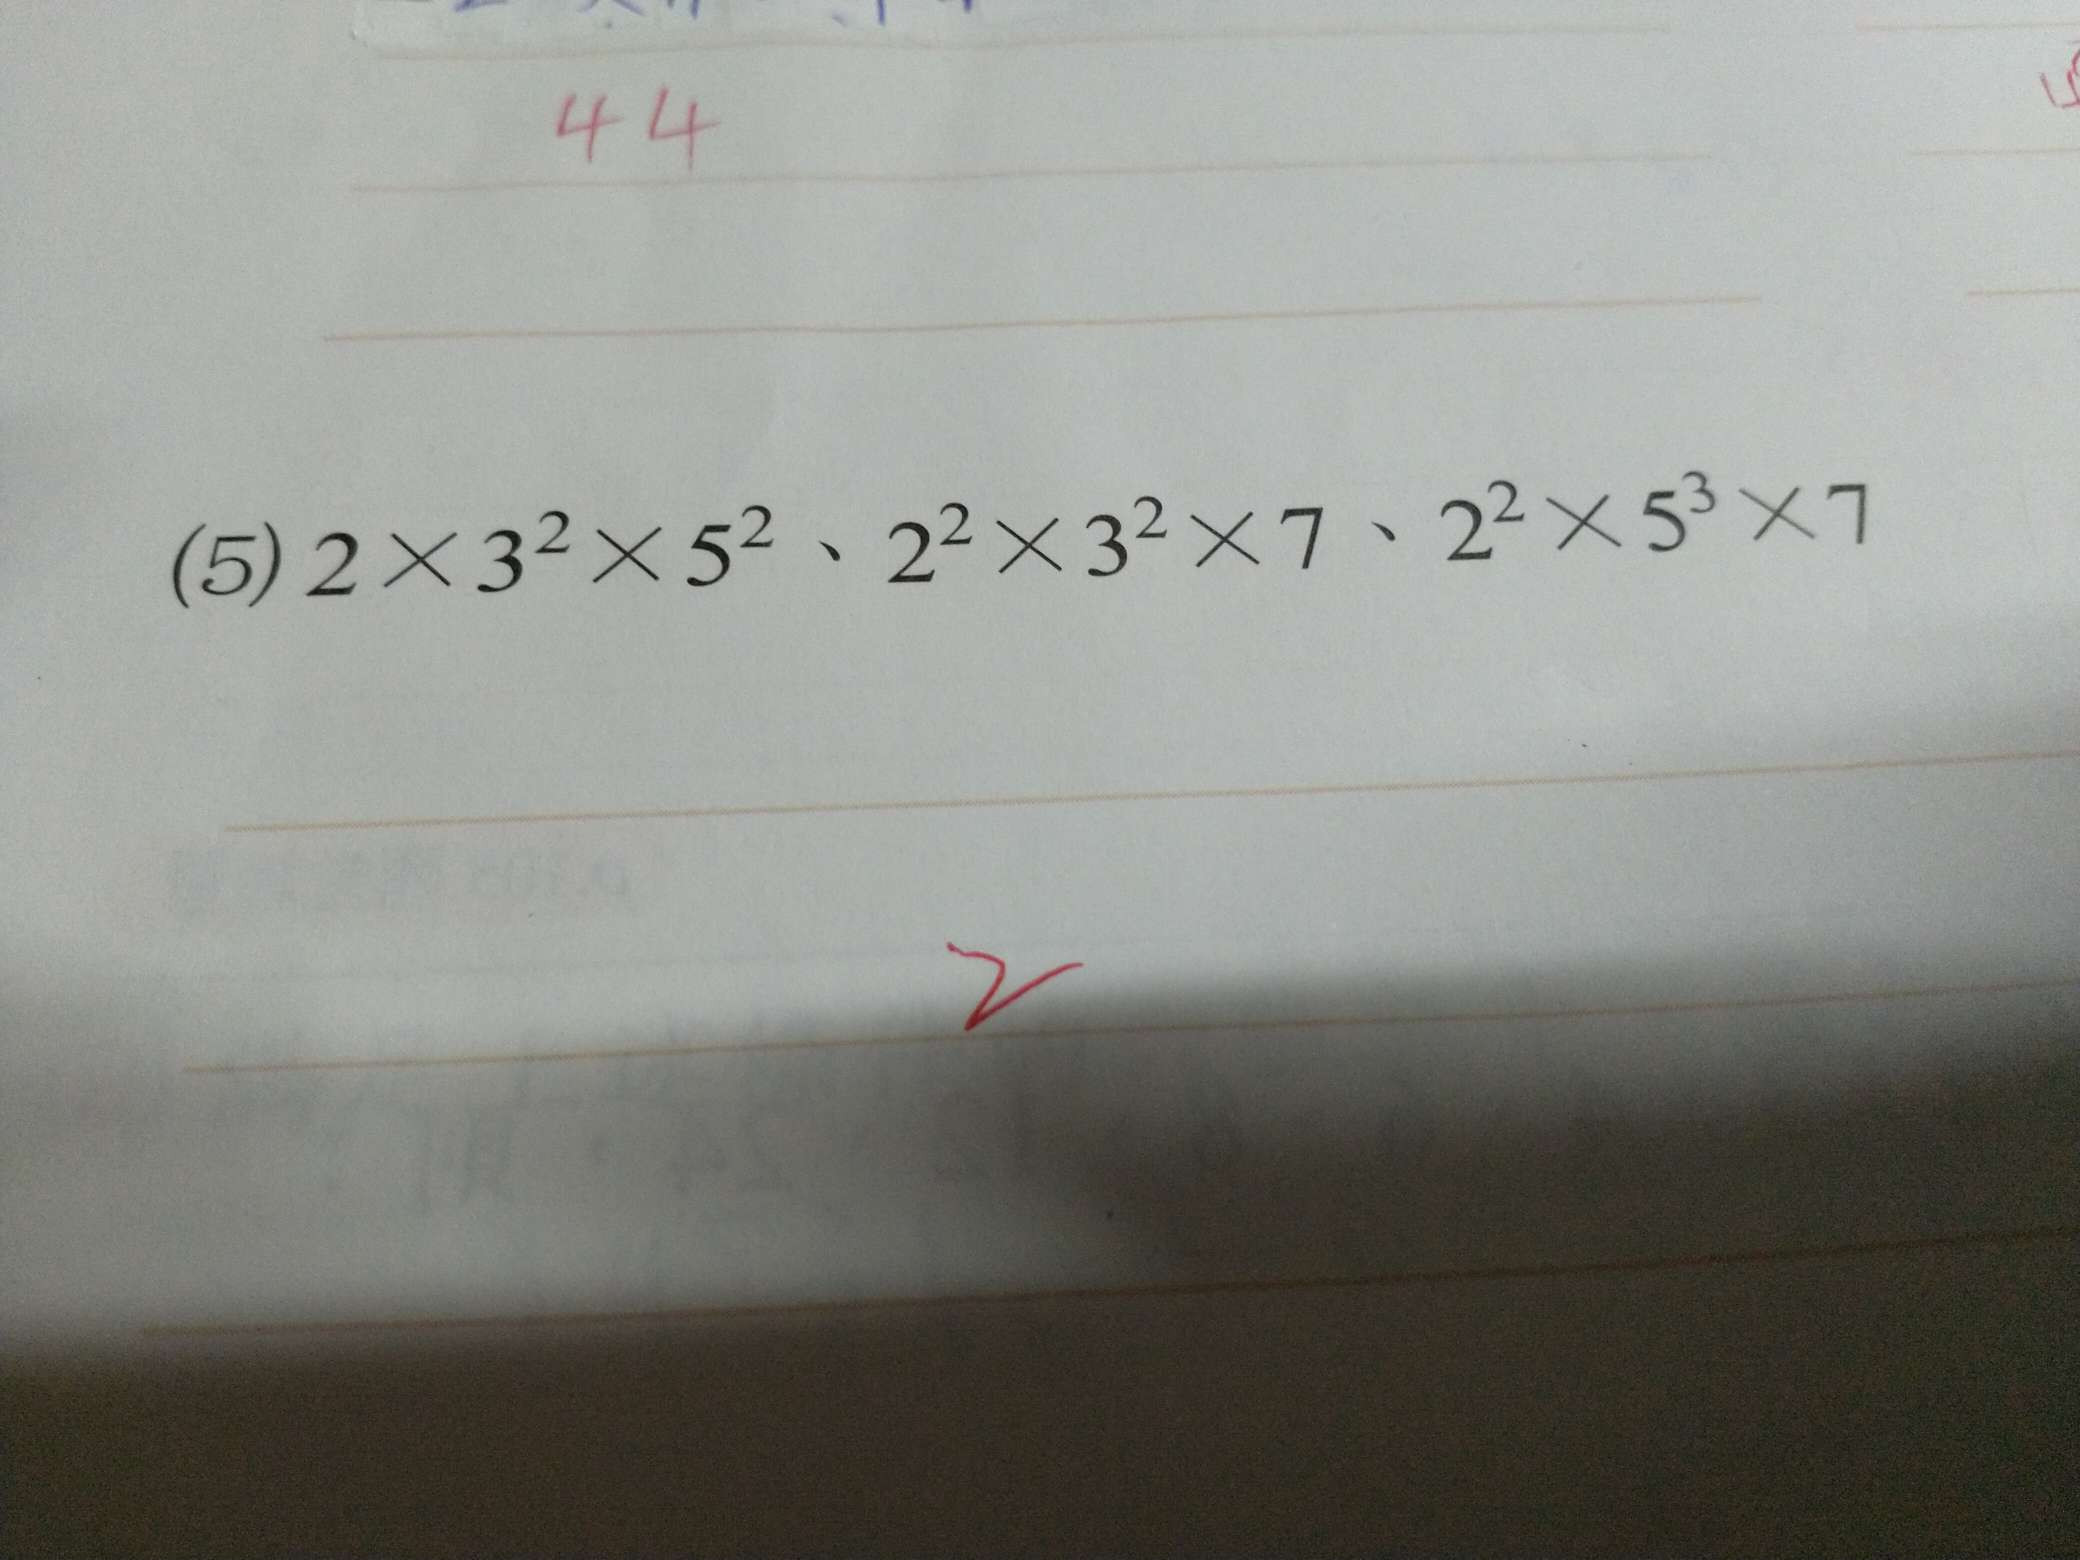 44
(5) 2×3²×5²、2²×3²×7、2²×5³×7
2